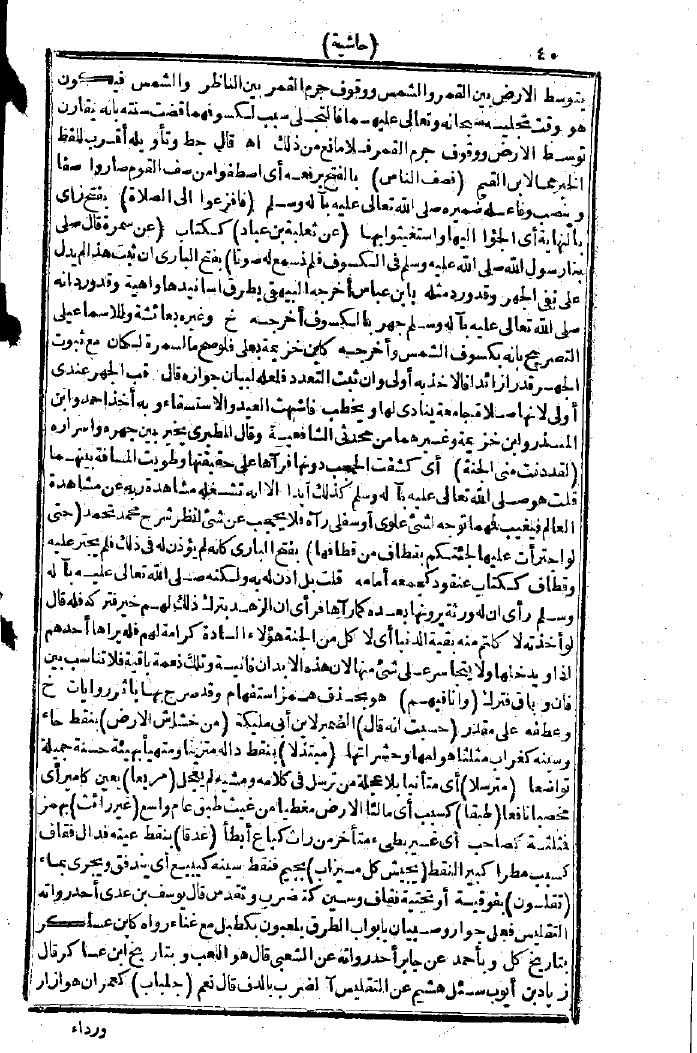 ٤٠
(حاشية)
يتوسط الارض بين القمر والشمس ووقوف جرم القمر بين الناظر والشمس فيكون
هو وقت تجليه سبحانه وتعالى عليهما فالتجلى سبب لكسوفهما قضت سنته بانه يقارن
توسط الارض ووقوف جرم القمر فلا مانع من ذلك اه قال جط وتأويله أقرب للفظ
الخبر مما لابن القيم (فصف الناس) بالفتح برفعه أى اصطفوا من صف القوم صاروا صفا
وبنصب وفاعله ضميره صلى الله تعالى عليه بآله وسلم (فافزعوا الى الصلاة) بفتح زاى
بالنهاية أى الجؤا اليها واستغيثوا بها (عن ثعلبة بن عباد) ككتاب (عن سمرة قال صلى
بنا رسول الله صلى الله عليه وسلم فى الكسوف فلم نسمع له صوتا) بفتح البارى ان ثبت هذا لم يدل
على نفى الجهر وقد ورد مثله بابن عباس أخرجه البيهقى بطرق أسانيدها واهية وقد ورد انه
صلى الله تعالى عليه بآله وسلم جهر بالكسوف أخرجه خ وغيره بعائشة وللاسماعيلى
التصريح بانه بكسوف الشمس وأخرجه كابن خزيمة بعلى فلو صح ما لسمرة لكان مع ثبوت
الجهر قدرا زائدا فالاخذ به أولى وان ثبت التعدد فلعله لبيان جوازه قال قب الجهر عندى
أولى لانها صلاة جامعة ينادى لها ويخطب فاشبهت العيد والاستسقاء وبه أخذ احمد وابن
المنذر وابن خزيمة وغيرهما من محدثى الشافعية وقال الطبرى يخير بين جهره واسراره
(لقد دنت منى الجنة) أى كشفت الحجب دونها فرآها على حقيقتها وطويت المسافة بينهما
قلت هو صلى الله تعالى عليه بآله وسلم كذلك أبدا الا انه تشغله مشاهدة ربه عن مشاهدة
العالم فيغيب فهما توجه لشئ علوى أو سفلى رآه فلا يحجب عن شئ انظر شرح محمد تحمد (حتى
لو اجترأت عليها لجئتكم بقطاف من قطافها) بفتح البارى كانه لم يؤذن له فى ذلك فلم يجتر عليه
وقطاف ككتاب عنقود كمعمعه أمامه قلت بل أذن له به ولكنه صلى الله تعالى عليه بآله
وسلم رأى ان له ورثة يرونها بعده كما رآها فرأى ان الزهد بترك ذلك لهم خير فتركه فله قال
لو أخذته لأكلتم منه بقية الدنيا أى لأكل من الجنة هؤلاء السادة كرامة لهم فله يراها أحدهم
اذا ويدخلها ولا يتجاسر على شئ منها لان هذه الابدان فانية وتلك نعمة باقية فلا تناسب بين
فان وباق فترك (وانا فيهم) هو بحذف همز استفهام وقد صرح بها باثر روايات خ
وعطفه على مقدر (حسبت انه قال) الضمير لابن أبى مليكة (من خشاش الارض) بنقط خاء
وسينه كغراب مثلثا هوامها وحشراتها (مبتذلا) بنقط داله متزينا ومتهيأ بهيئة حسنة جميلة
تواضعا (مترسلا) أى متأنيا بلا عجلة من ترسل فى كلامه ومشيه لم يعجل (مريعا) بعين كامير أى
مخصبا نافعا (طبقا) كسبب أى مالئا الارض مغطيا من غيث طبق عام واسع (غير رائث) بهمز
فثلثة كصاحب أى غير بطىء متأخر من راث كباع أبطأ (غدقا) بنقط عينه فدال فقاف
كسبب مطرا كبير النقط (يجيش كل ميزاب) بجيم فنقط سينه كيبيع أى يتدفق ويجرى بماء
(تقلسون) بفوقية أو تحتية فقاف وسين كتضرب وتقدمس قال يوسف بن عدى أحد رواته
التقليس فعلى جوار وصبيان بابواب الطرق يلعبون بكطبل مع غناء رواه كابن عساكر
بتاريخ كل وبأحمد عن جابر أحد رواته عن الشعبى قال هو اللعب وبتاريخ ابن عساكر قال
زياد بن أيوب سئل هشيم عن التقليس آ لضرب بالدف قال نعم (جلباب) كعمران هو ازار
ورداء